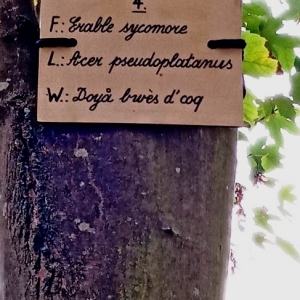 4.
F.: Erable sycomore
L.: Acer pseudoplatanus
W.: Doyå bwès d'coq